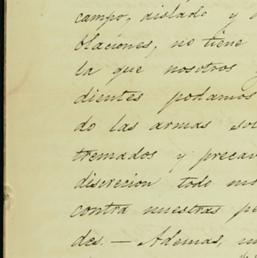 campo, aislado y
blaciones, no tiene
la que nosotros
dientes podamos
do las armas
tremados y
discrecion todo
contra nuestras
des. — Ademas,